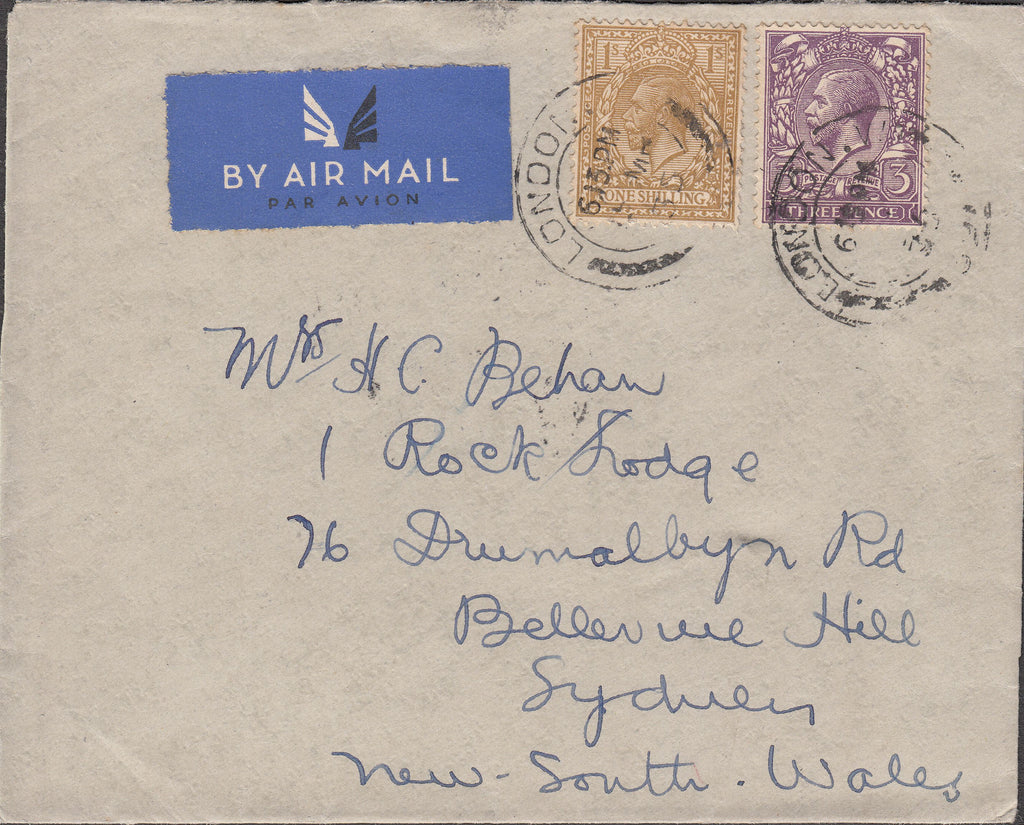 BY AIR MAIL
PAR AVION
1S 1S
ONE SHILLING
POSTAGE REVENUE 3
THREE PENCE
LONDON
6 15 PM
LONDON
Mrs H C. Behan
1 Rock Lodge
76 Drumalbyn Rd
Bellevue Hill
Sydney
New-South. Wales